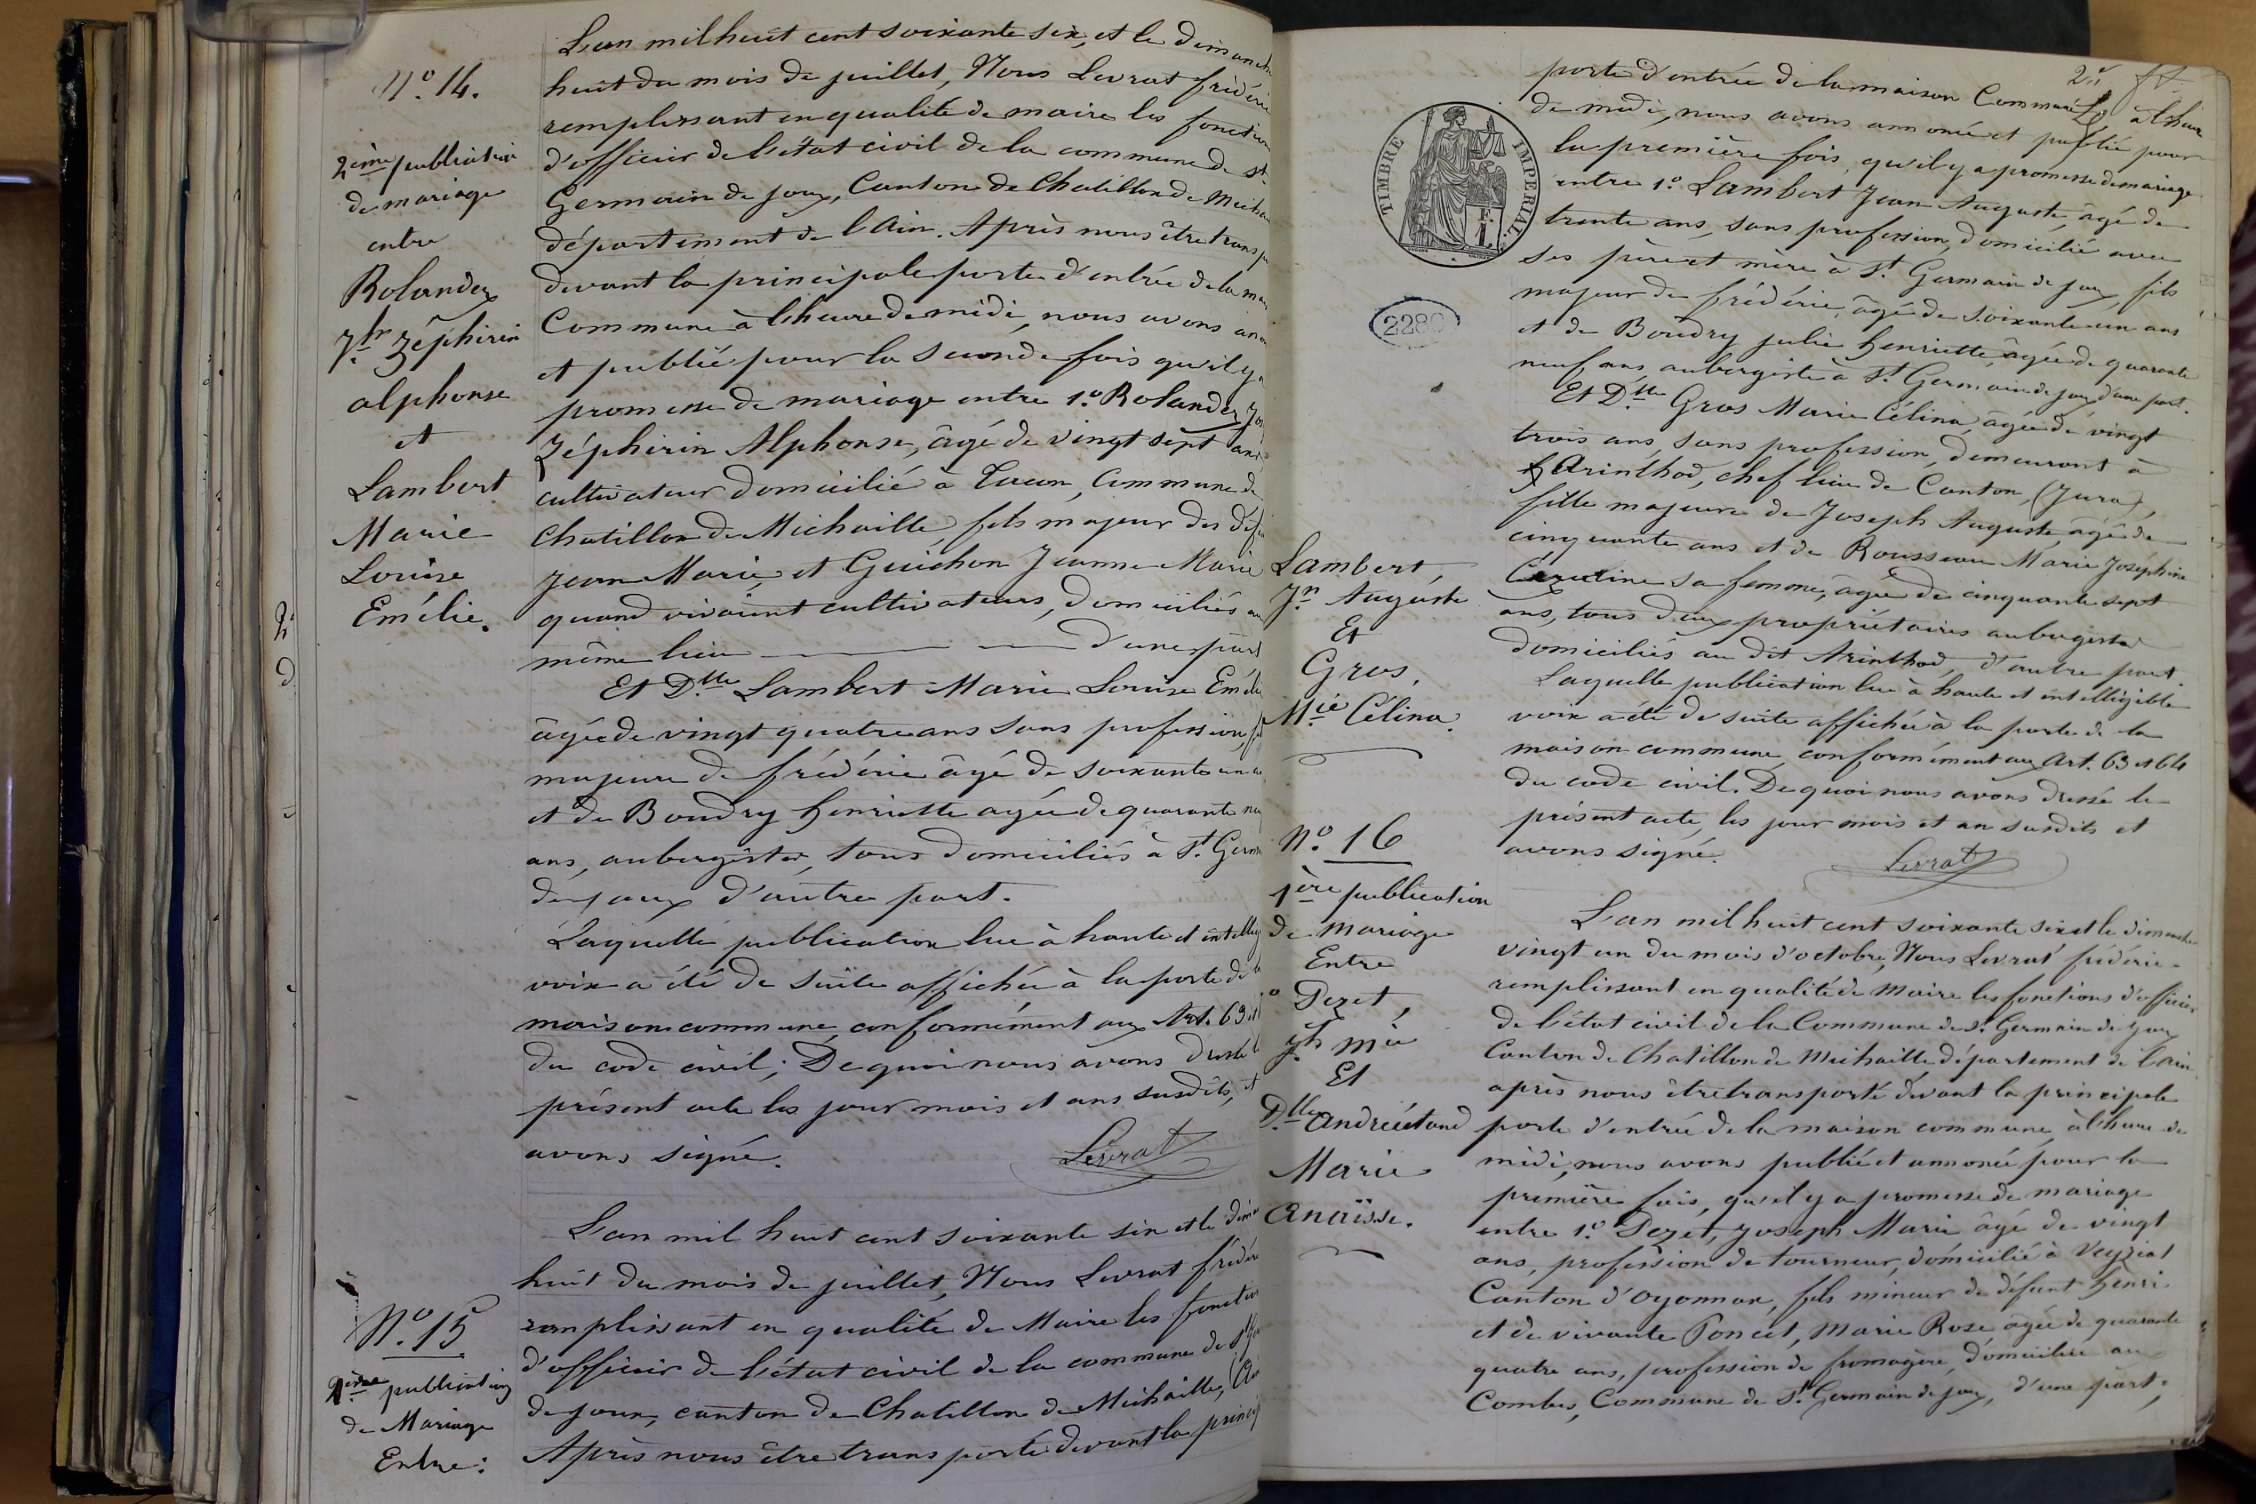 N° 14.
2ème publication
de mariage
entre
Rolandez
Jh Zéphirin
alphonse
et
Lambert
Marie
Louise
Emélie.
L'an mil huit cent soixante six, et le dimanche
huit du mois de juillet, Nous Levrat frédéric
remplissant en qualité de maire les fonctions
d'officier de l'état civil de la commune de st
Germain de joux, Canton de Chatillon de Micha
département de l'Ain. Après nous être transpo
devant la principale porte d'entrée de la mai
Commune à l'heure de midi, nous avons anno
et publié pour la seconde fois qu'il y a
promesse de mariage entre 1° Rolandez, Jos
Zéphirin Alphonse, âgé de vingt sept ans
cultivateur domicilié à Tacon, Commune de
Chatillon de Michaille, fils majeur des défu
Jean Marie, et Guichon Jeanne Marie
quand vivaient cultivateurs, domiciliés au
même lieu d'une part
Et Dlle Lambert Marie Louise Eméli
âgée de vingt quatre ans sans profession, fil
majeure de frédéric âgé de soixante un a
et de Boudry henriette agée de quarante neu
ans, aubergistes, tous domiciliés à St. Germ
de joux d'autre part.
Laquelle publication lue à haute et intellig
voix a été de suite affichée à la porte de la
maison commune, conformément aux Art. 63 et
du code civil; De quoi nous avons dressé le
présent acte les jour mois et ans susdits, et
avons signé.
Levrat
N° 15
1ère publication
de Mariage
Entre:
L'an mil huit cent soixante six et le dima
huit du mois de juillet, Nous Levrat frédér
remplissant en qualité de Maire les fonction
d'officier de l'état civil de la commune de St Ger
de joux, canton de Chatillon de Michaille, (Ai
Après nous être transporté devant la princip
2d
TIMBRE IMPERIAL
2280
porte d'entrée de la maison Commune à l'heure
de midi, nous avons annoncé et publié pour
la première fois, qu'il y a promesse de mariage
entre 1° Lambert Jean Auguste, âgé de
trente ans, sans profession, domicilié avec
ses père et mère à St. Germain de joux, fils
majeur de frédéric, âgé de soixante un ans
et de Boudry julie henriette, âgée de quarante
neuf ans, aubergiste à St. Germain de joux d'une part.
Et Dlle Gros Marie Célina, âgée de vingt
trois ans, sans profession, demeurant à
Arinthod, chef lieu de Canton, (Jura),
fille majeure de Joseph Auguste âgé de
cinquante ans et de Rousseau Marie Joséphine
sa femme, âgée de cinquante sept
ans, tous deux propriétaires aubergistes
domiciliés au dit Arinthod, d'autre part.
Laquelle publication lue à haute et intelligible
voix a été de suite affichée à la porte de la
maison commune, conformément aux Art. 63 et 64
du code civil. De quoi nous avons dressé le
présent acte, les jour mois et an susdits et
avons signé.
Levrat
Lambert,
Jn Auguste
Et
Gros,
Mie Célina.
N° 16
1ère publication
de mariage
Entre
Dezet,
Jh Mie
Et
Dlle
Marie
Anaïsse.
L'an mil huit cent soixante six et le dimanche
vingt un du mois d'octobre, Nous Levrat frédéric
remplissant en qualité de Maire les fonctions d'officier
de l'état civil de la Commune de St. Germain de joux
Canton de Chatillon de Michaille département de l'ain
après nous être transporté devant la principale
porte d'entrée de la maison commune, à l'heure de
midi, nous avons publié et annoncé pour la
première fois, qu'il y a promesse de mariage
entre 1° Dezet, Joseph Marie âgé de vingt
ans, profession de tourneur, domicilié à Veyziat
Canton d'oyonnax, fils mineur de défunt henri
et de vivante Poncet, Marie Rose âgée de quarante
quatre ans, profession de fromagère, domiciliée au
Combes, Commune de St. Germain de joux, d'une part;